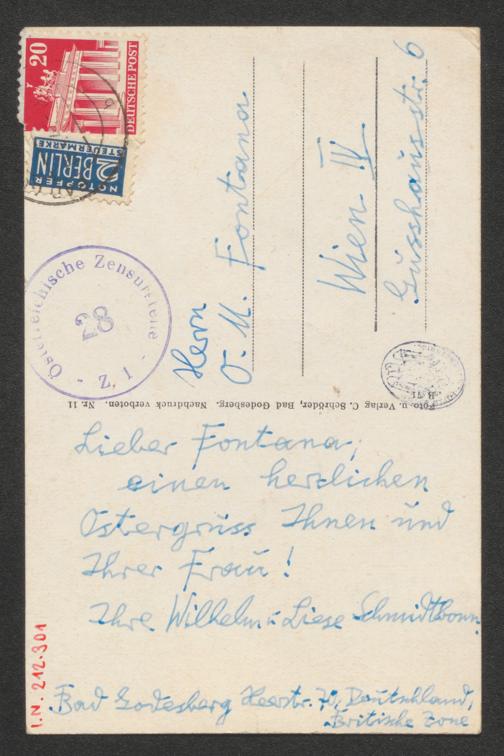 20
DEUTSCHE POST
NOTOPFER
2 BERLIN
STEUERMARKE
Österreichische Zensurstelle
28
- Z. 1 -
Herrn
O. M. Fontana
Wien IV
Gusshausstr. 6
Foto u. Verlag C. Schröder, Bad Godesberg. Nachdruck verboten. Nr. 11
Lieber Fontana,
einen herzlichen
Ostergruss Ihnen und
Ihrer Frau!
Ihre Wilhelm u Liese Schmidtbonn
Bad Godesberg Heerstr. 70, Deutschland,
Britische Zone
I.N. 212.301